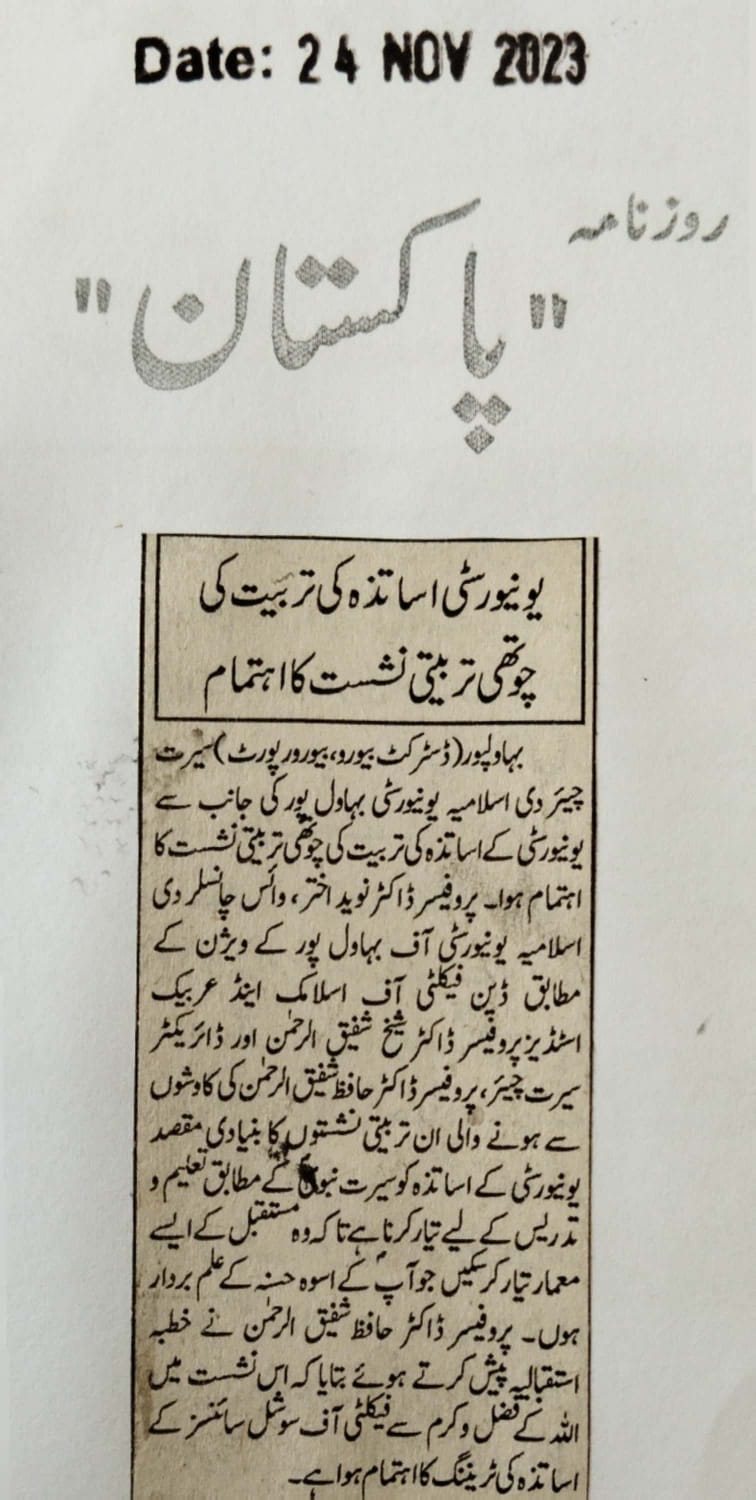 Date: 24 NOV 2023
روزنامہ
"پاکستان"
یونیورسٹی اساتذہ کی تربیت کی
چوتھی تربیتی نشست کا اہتمام
بہاولپور (ڈسٹرکٹ بیورو، بیورورپورٹ) سیرت
چیئر دی اسلامیہ یونیورسٹی بہاول پور کی جانب سے
یونیورسٹی کے اساتذہ کی تربیت کی چوتھی تربیتی نشست کا
اہتمام ہوا۔ پروفیسر ڈاکٹر نوید اختر، وائس چانسلر دی
اسلامیہ یونیورسٹی آف بہاول پور کے ویژن کے
مطابق ڈین فیکلٹی آف اسلامک اینڈ عربیک
اسٹڈیز پروفیسر ڈاکٹر شیخ شفیق الرحمٰن اور ڈائریکٹر
سیرت چیئر، پروفیسر ڈاکٹر حافظ شفیق الرحمٰن کی کاوشوں
سے ہونے والی ان تربیتی نشستوں کا بنیادی مقصد
یونیورسٹی کے اساتذہ کو سیرت نبوی کے مطابق تعلیم و
تدریس کے لیے تیار کرنا ہے تاکہ وہ مستقبل کے ایسے
معمار تیار کرسکیں جو آپؐ کے اسوہ حسنہ کے علم بردار
ہوں۔ پروفیسر ڈاکٹر حافظ شفیق الرحمٰن نے خطبہ
استقبالیہ پیش کرتے ہوئے بتایا کہ اس نشست میں
اللہ کے فضل و کرم سے فیکلٹی آف سوشل سائنسز کے
اساتذہ کی ٹریننگ کا اہتمام ہوا ہے۔